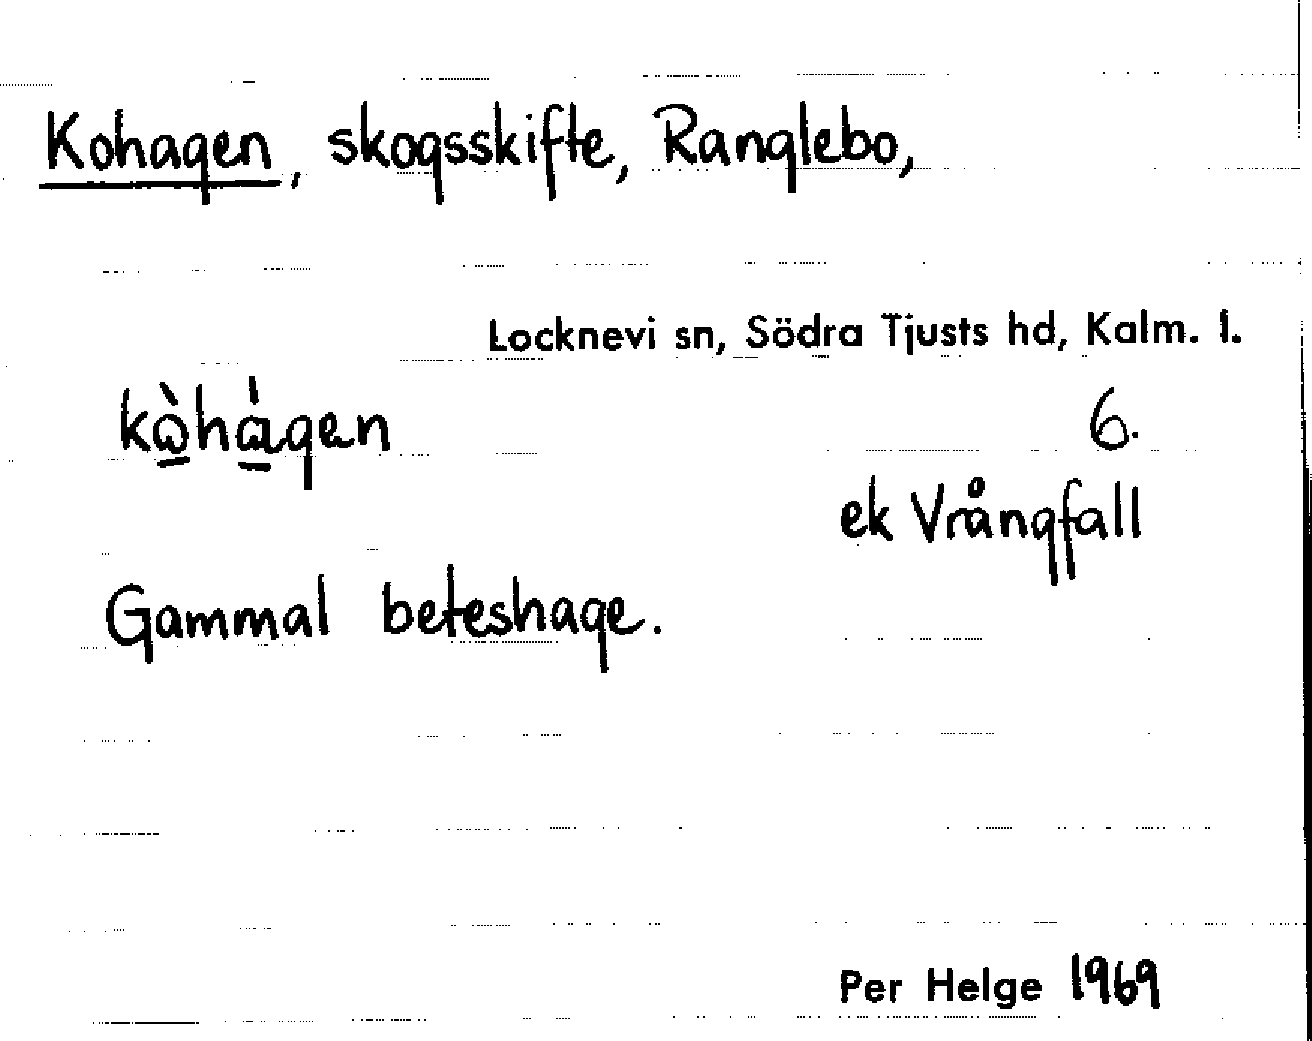 Kohagen, skogsskifte, Ranglebo,
Locknevi sn, Södra Tjusts hd, Kalm. l.
kòhágen
6.
ek Vrångfall
Gammal beteshage.
Per Helge 1969